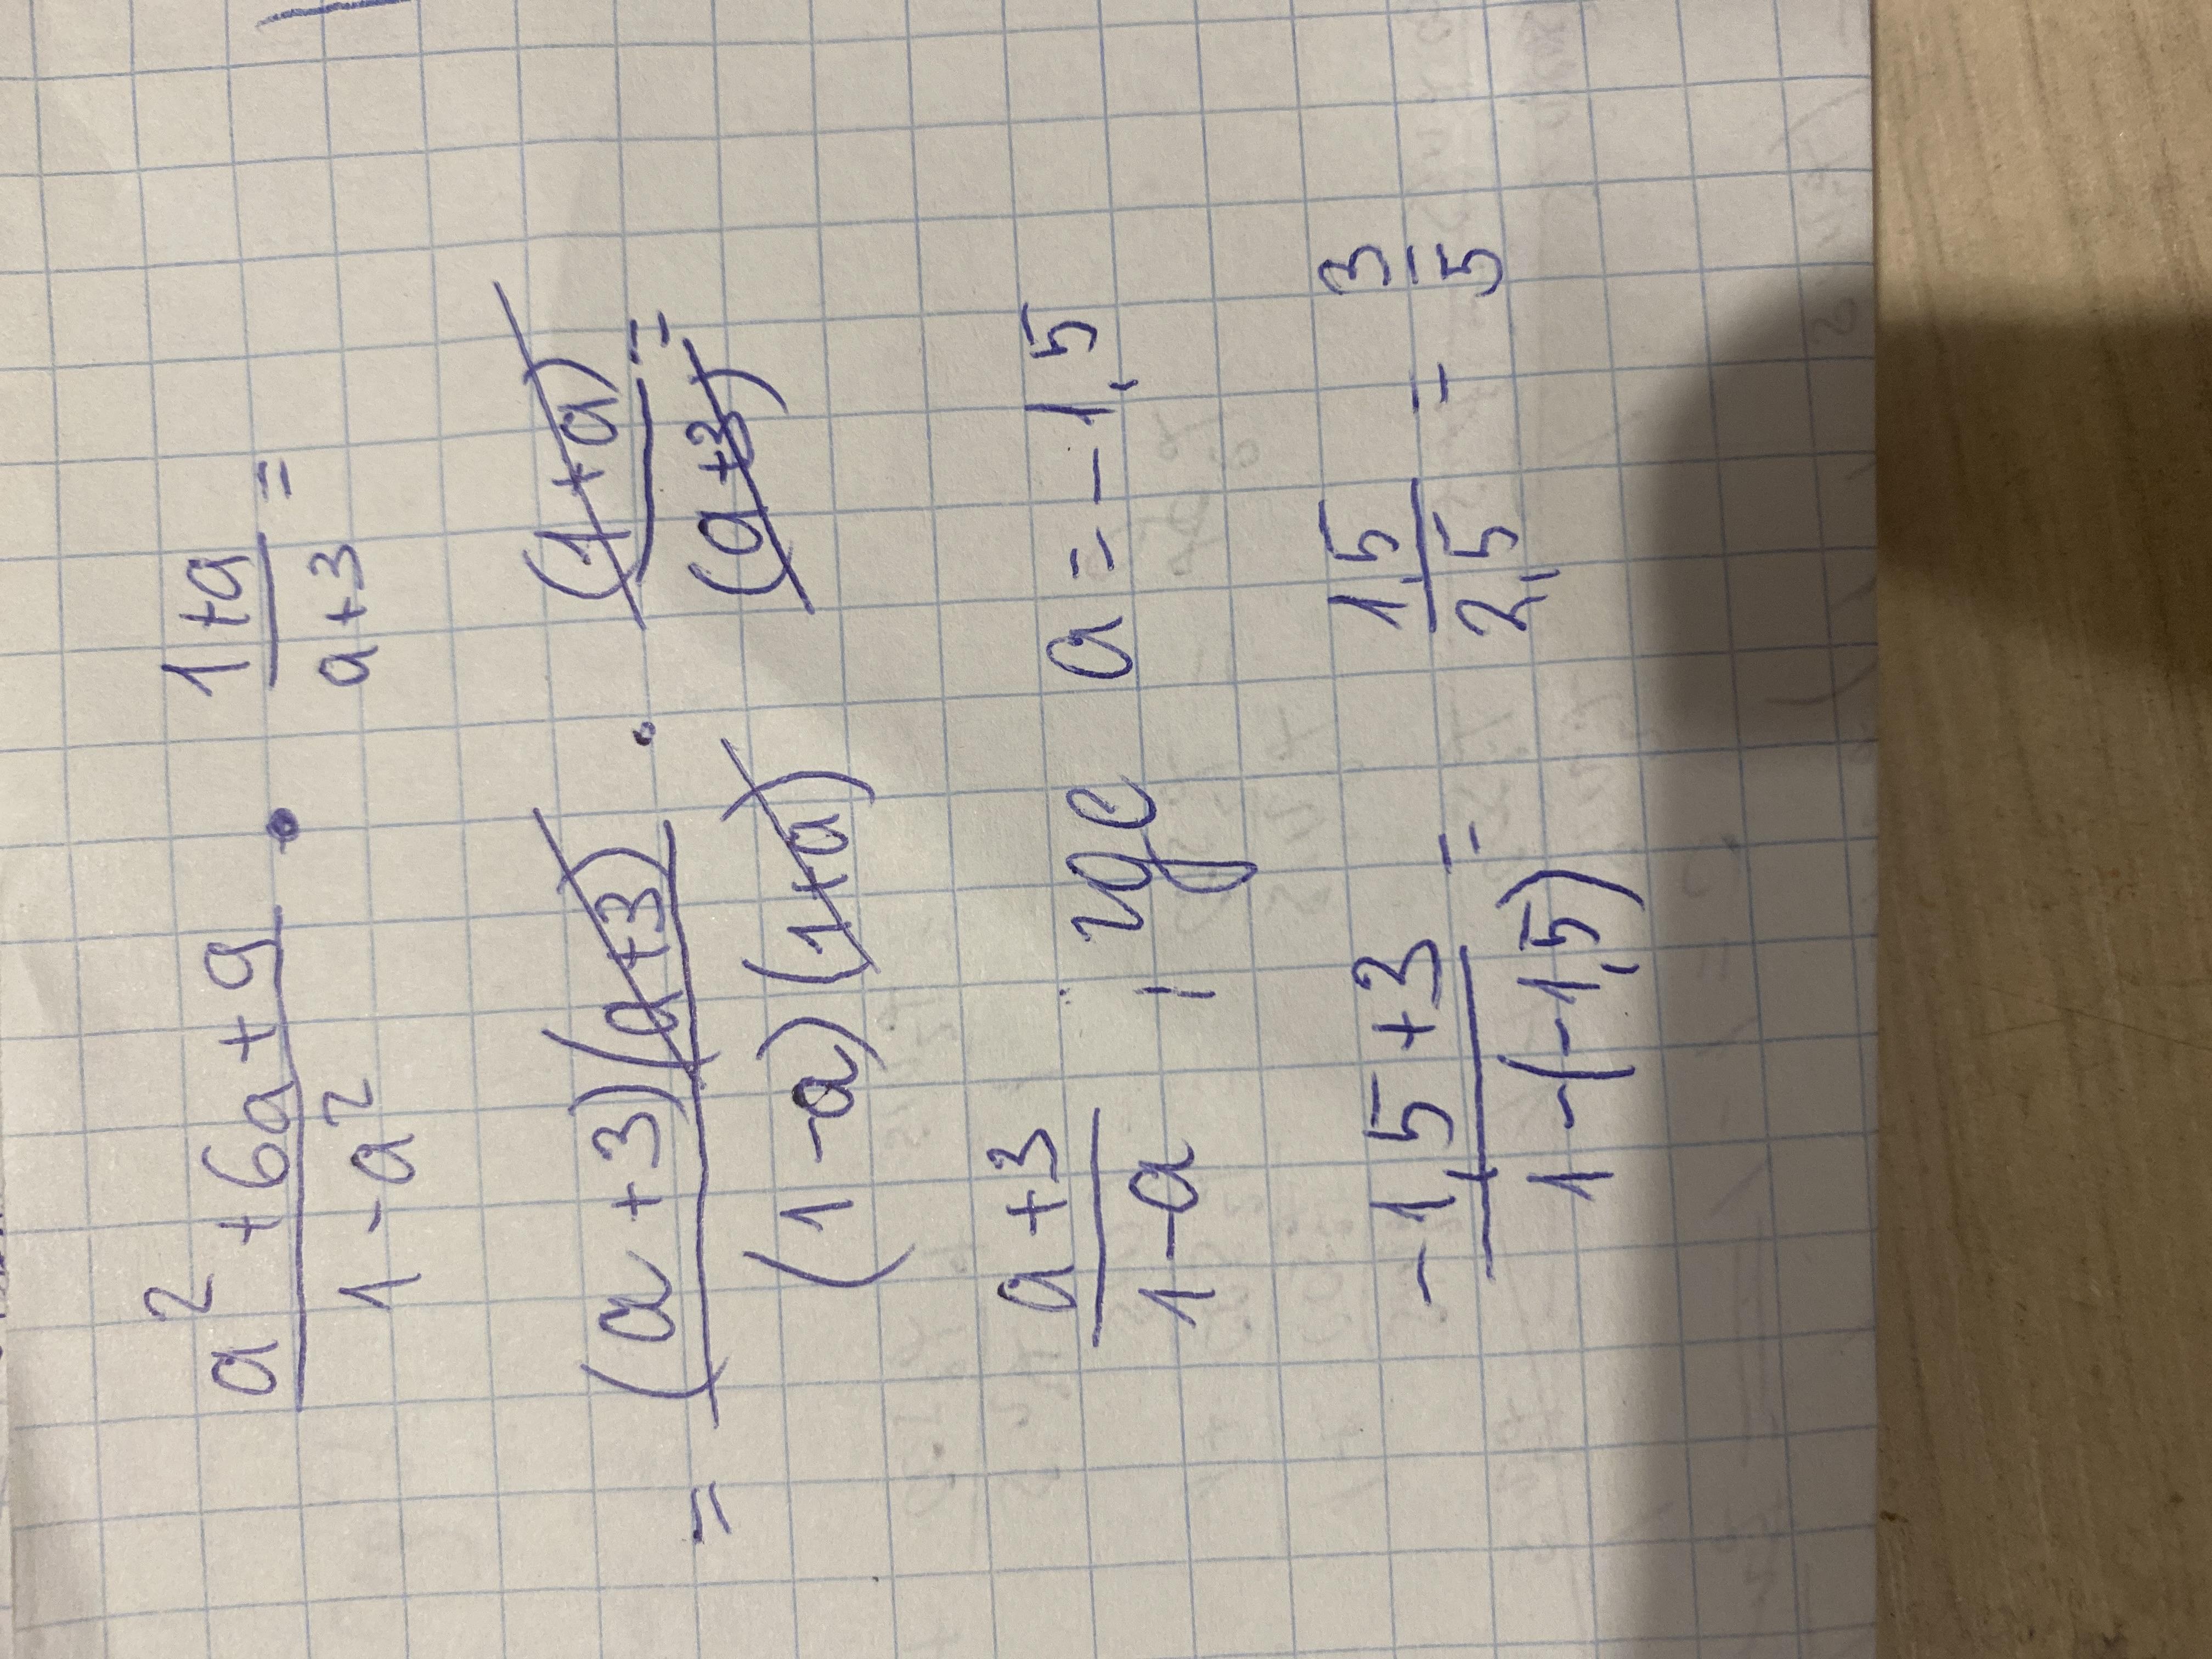 a² + 6a + 9 / 1 - a² • 1+a / a+3 =
= (a+3)(a+3) / (1-a)(1+a) • (1+a) / (a+3) =
a+3 / 1-a ; где a = -1,5
-1,5+3 / 1-(-1,5) = 1,5 / 2,5 = 3/5